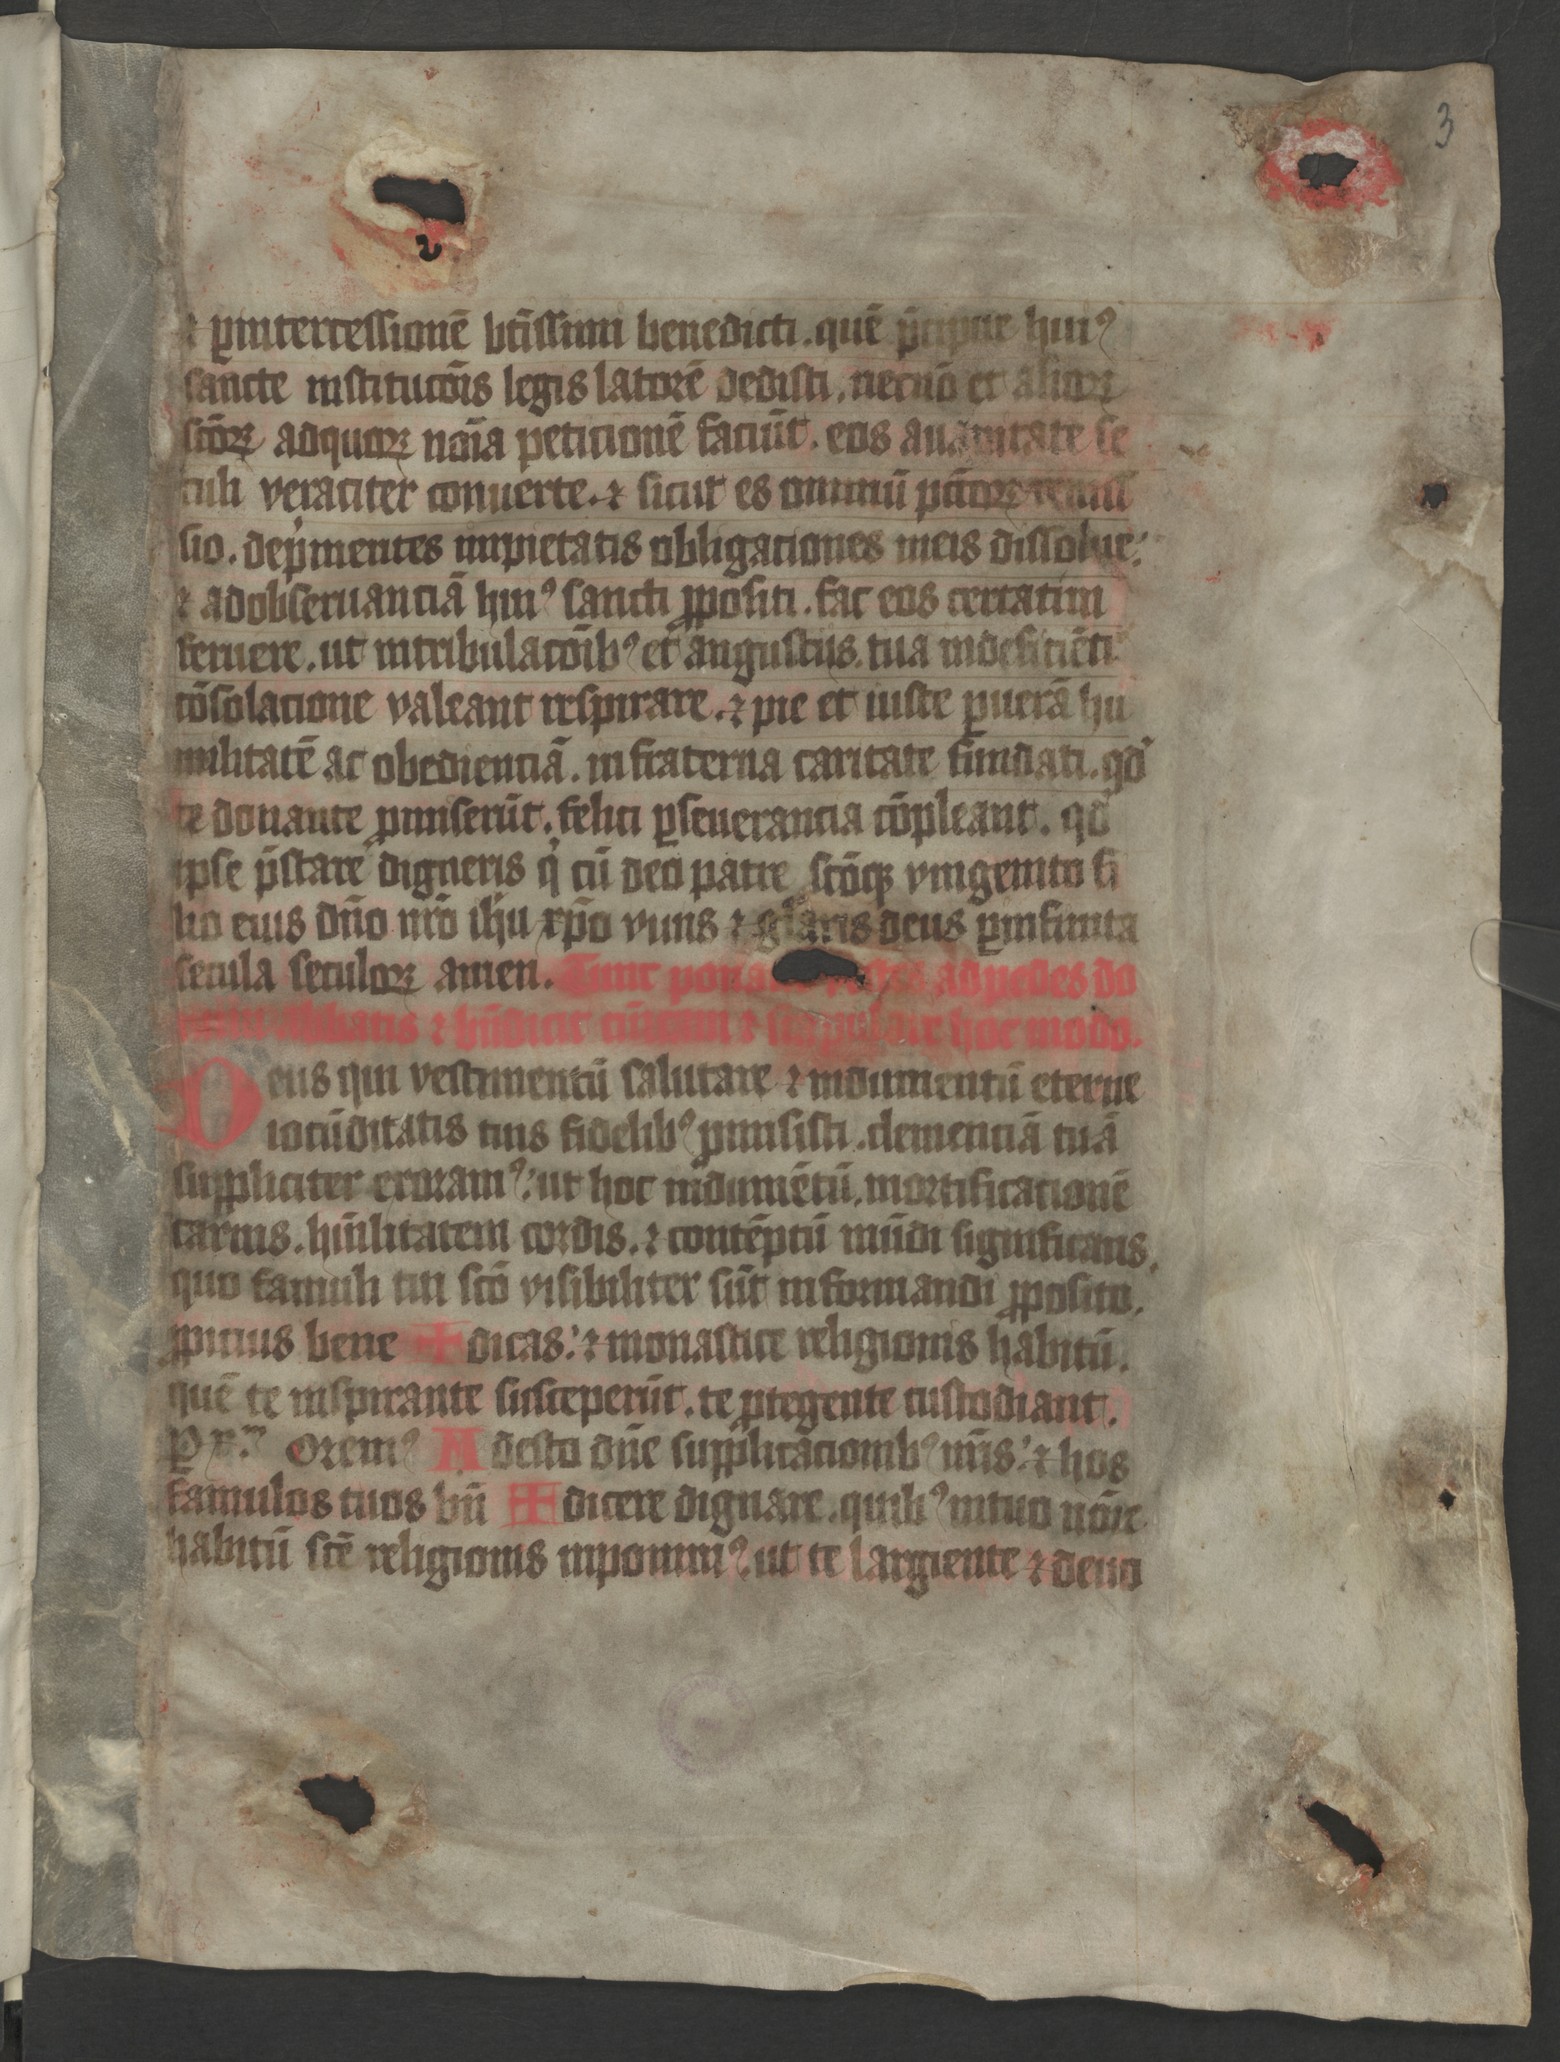 3
⁊ ꝑintercessionē btīssimi benedicti . quē p̄cipue huiꝰ
sancte institucōis legis latorē dedisti . necnō et alioꝝ
sc̄oꝝ adquoꝝ noīa peticionē faciūt . eos auanitate se
culi veraciter conuerte . ⁊ sicut es omniū pc̄toꝝ remis
sio . dep̄mentes impietatis obligationes in eis dissolue :
⁊ adobseruanciā huiꝰ sancti ꝓpositi . fac eos certatim
feruere . ut intribulacōibꝰ et angustiis . tua indeficiēti
cōsolacione valeant respirare . ⁊ pie et iuste ꝑuerā hu
militatē ac obedienciā . infraterna caritate fundati . qd̓
te donante ꝓmiserūt . felici ꝑseuerancia cōpleant . qd̓
ipse p̄stare digneris q̓ cū deo patre sc̄oqꝫ vnigenito fi
lio eius dn̄o nr̄o ih̄u xp̄o viuis ⁊ gl̄aris deus ꝑinfinita
secula seculoꝝ amen . Tunc adpedes do
Abbatis ⁊ bn̄dicit cucam ⁊ scapulare hoc modo .
Deus qui vestimentū salutare ⁊ indumentū eterne
iocūditatis tuis fidelibꝰ ꝓmisisti . clemenciā tuā
suppliciter exoramꝰ : ut hoc indumētū . mortificationē
carnis . hūilitatem cordis . ⁊ contēptū mūdi significans .
quo famuli tui sc̄o visibiliter sūt informandi ꝓposito .
ꝓpicius bene ✝ dicas : ⁊ monastice religionis habitū .
quē te inspirante susceperūt . te ꝓtegente custodiant .
P x̄ Oremꝰ Adesto dn̄e supplicacionibꝰ nr̄is : ⁊ hos
famulos tuos bn̄ ✠ dicere dignare . quibꝰ intuo nōīe
habitū sc̄e religionis inponimꝰ . ut te largiente ⁊ deuo